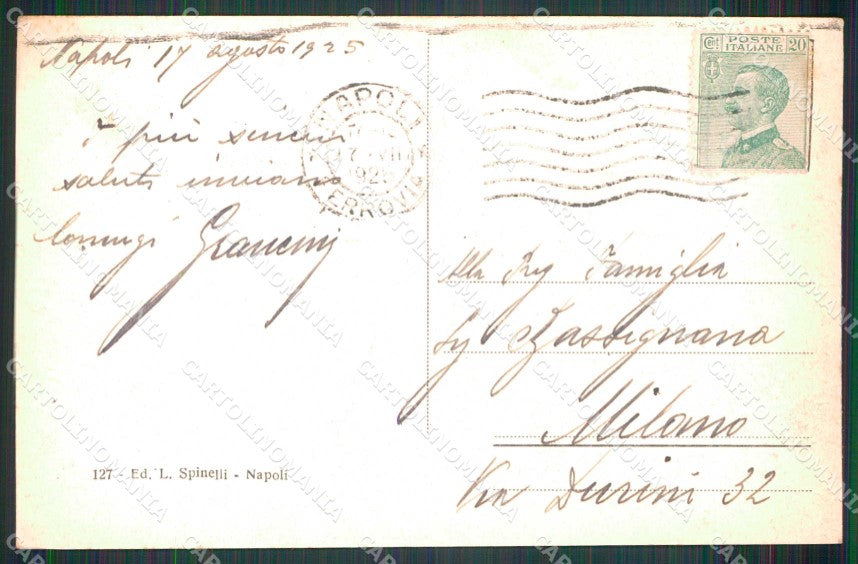 Napoli 17 agosto 1925
I più sinceri
saluti inviano
Coniugi
NAPOLI
FERROVIA
1925
POSTE
ITALIANE
Cent. 20
Alla Preg Famiglia
Sig Bassignana
Milano
Via Durini 32
127 - Ed. L. Spinelli - Napoli
CARTOLINOMANIA